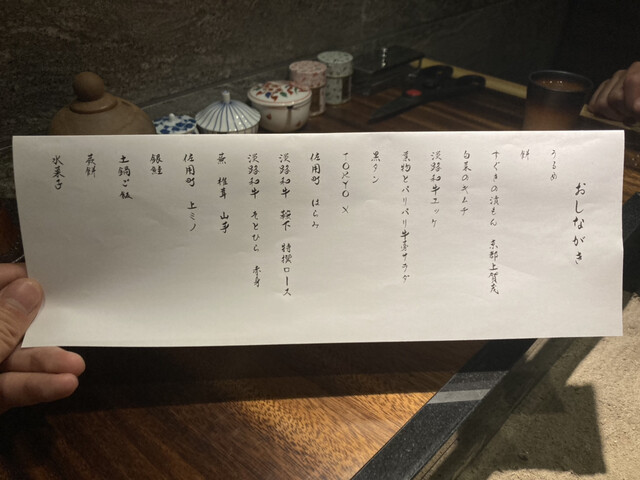 おしながき
うるめ
餅
すぐきの漬もん 京都上賀茂
白菜のキムチ
淡路和牛ユッケ
葉物とパリパリ牛蒡サラダ
黒タン
TOKYO X
佐用町 はらみ
淡路和牛 鞍下 特撰ロース
淡路和牛 そとひら 赤身
蕪 椎茸 山芋
佐用町 上ミノ
銀鮭
土鍋ご飯
蕨餅
水菓子